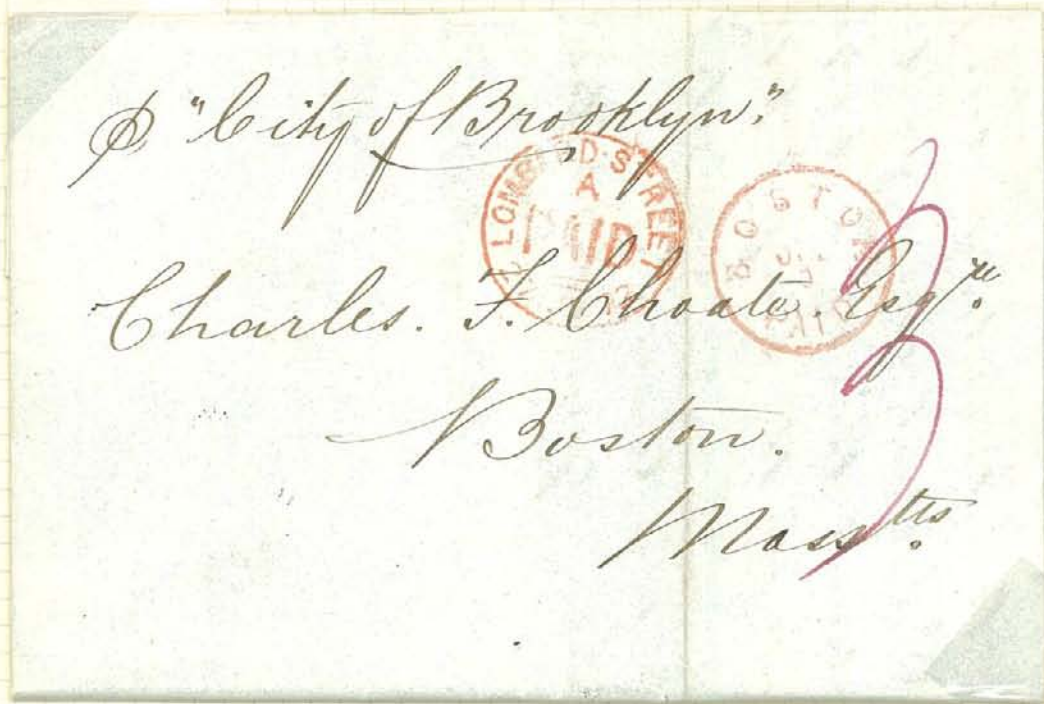 p "City of Brooklyn".
LOMBARD·STREET
A
PAID
BOSTON
PAID
3
Charles. F. Choate. Esqre.
Boston.
Masstts.